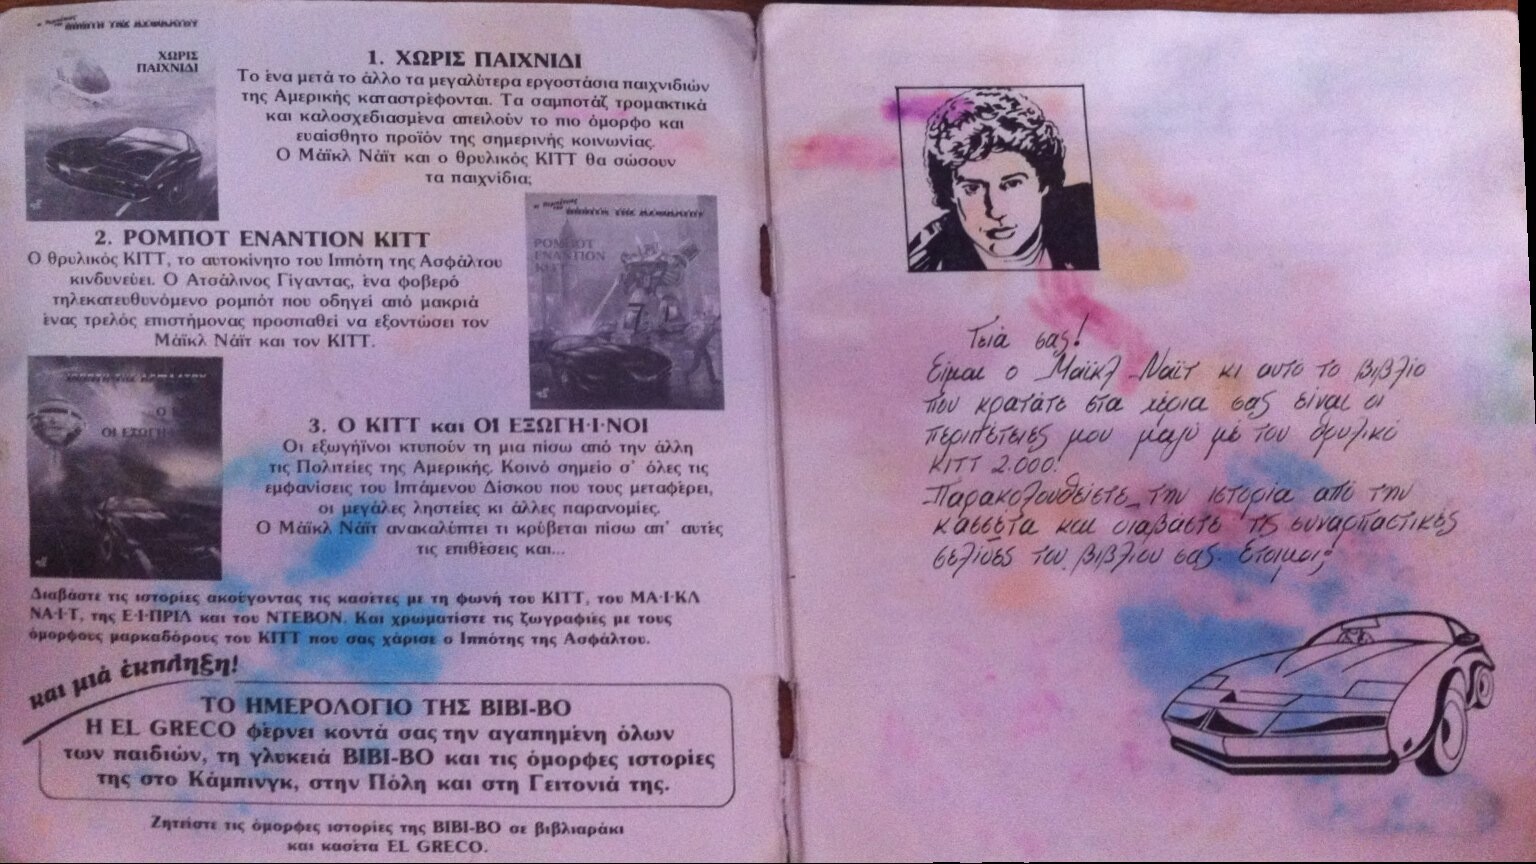 ΙΠΠΟΤΗ ΤΗΣ ΑΣΦΑΛΤΟΥ
ΧΩΡΙΣ
ΠΑΙΧΝΙΔΙ
1. ΧΩΡΙΣ ΠΑΙΧΝΙΔΙ
Το ένα μετά το άλλο τα μεγαλύτερα εργοστάσια παιχνιδιών
της Αμερικής καταστρέφονται. Τα σαμποτάζ τρομακτικά
και καλοσχεδιασμένα απειλούν το πιο όμορφο και
ευαίσθητο προϊόν της σημερινής κοινωνίας.
Ο Μάϊκλ Νάϊτ και ο θρυλικός ΚΙΤΤ θα σώσουν
τα παιχνίδια;
ΙΠΠΟΤΗ ΤΗΣ ΑΣΦΑΛΤΟΥ
ΡΟΜΠΟΤ
ΕΝΑΝΤΙΟΝ
ΚΙΤΤ
2. ΡΟΜΠΟΤ ΕΝΑΝΤΙΟΝ ΚΙΤΤ
Ο θρυλικός ΚΙΤΤ, το αυτοκίνητο του Ιππότη της Ασφάλτου
κινδυνεύει. Ο Ατσάλινος Γίγαντας, ένα φοβερό
τηλεκατευθυνόμενο ρομπότ που οδηγεί από μακριά
ένας τρελός επιστήμονας προσπαθεί να εξοντώσει τον
Μάϊκλ Νάϊτ και τον ΚΙΤΤ.
3. Ο ΚΙΤΤ και ΟΙ ΕΞΩΓΗ·Ι·ΝΟΙ
Οι εξωγήϊνοι κτυπούν τη μια πίσω από την άλλη
τις Πολιτείες της Αμερικής. Κοινό σημείο σ' όλες τις
εμφανίσεις του Ιπτάμενου Δίσκου που τους μεταφέρει,
οι μεγάλες ληστείες κι άλλες παρανομίες.
Ο Μάϊκλ Νάϊτ ανακαλύπτει τι κρύβεται πίσω απ' αυτές
τις επιθέσεις και...
Διαβάστε τις ιστορίες ακούγοντας τις κασέτες με τη φωνή του ΚΙΤΤ, του ΜΑ·Ι·ΚΛ
ΝΑ·Ι·Τ, της Ε·Ι·ΠΡΙΛ και του ΝΤΕΒΟΝ. Και χρωματίστε τις ζωγραφιές με τους
όμορφους μαρκαδόρους του ΚΙΤΤ που σας χάρισε ο Ιππότης της Ασφάλτου.
και μιά έκπληξη!
ΤΟ ΗΜΕΡΟΛΟΓΙΟ ΤΗΣ ΒΙΒΙ-ΒΟ
Η EL GRECO φέρνει κοντά σας την αγαπημένη όλων
των παιδιών, τη γλυκειά ΒΙΒΙ-ΒΟ και τις όμορφες ιστορίες
της στο Κάμπινγκ, στην Πόλη και στη Γειτονιά της.
Ζητείστε τις όμορφες ιστορίες της ΒΙΒΙ-ΒΟ σε βιβλιαράκι
και κασέτα EL GRECO.
Γειά σας!
Είμαι ο Μάϊκλ Νάϊτ κι αυτό το βιβλίο
που κρατάτε στα χέρια σας είναι οι
περιπέτειες μου μαζί με τον θρυλικό
ΚΙΤΤ 2.000.
Παρακολουθείστε την ιστορία από την
κασσέτα και διαβάστε τις συναρπαστικές
σελίδες του βιβλίου σας. Έτοιμοι;